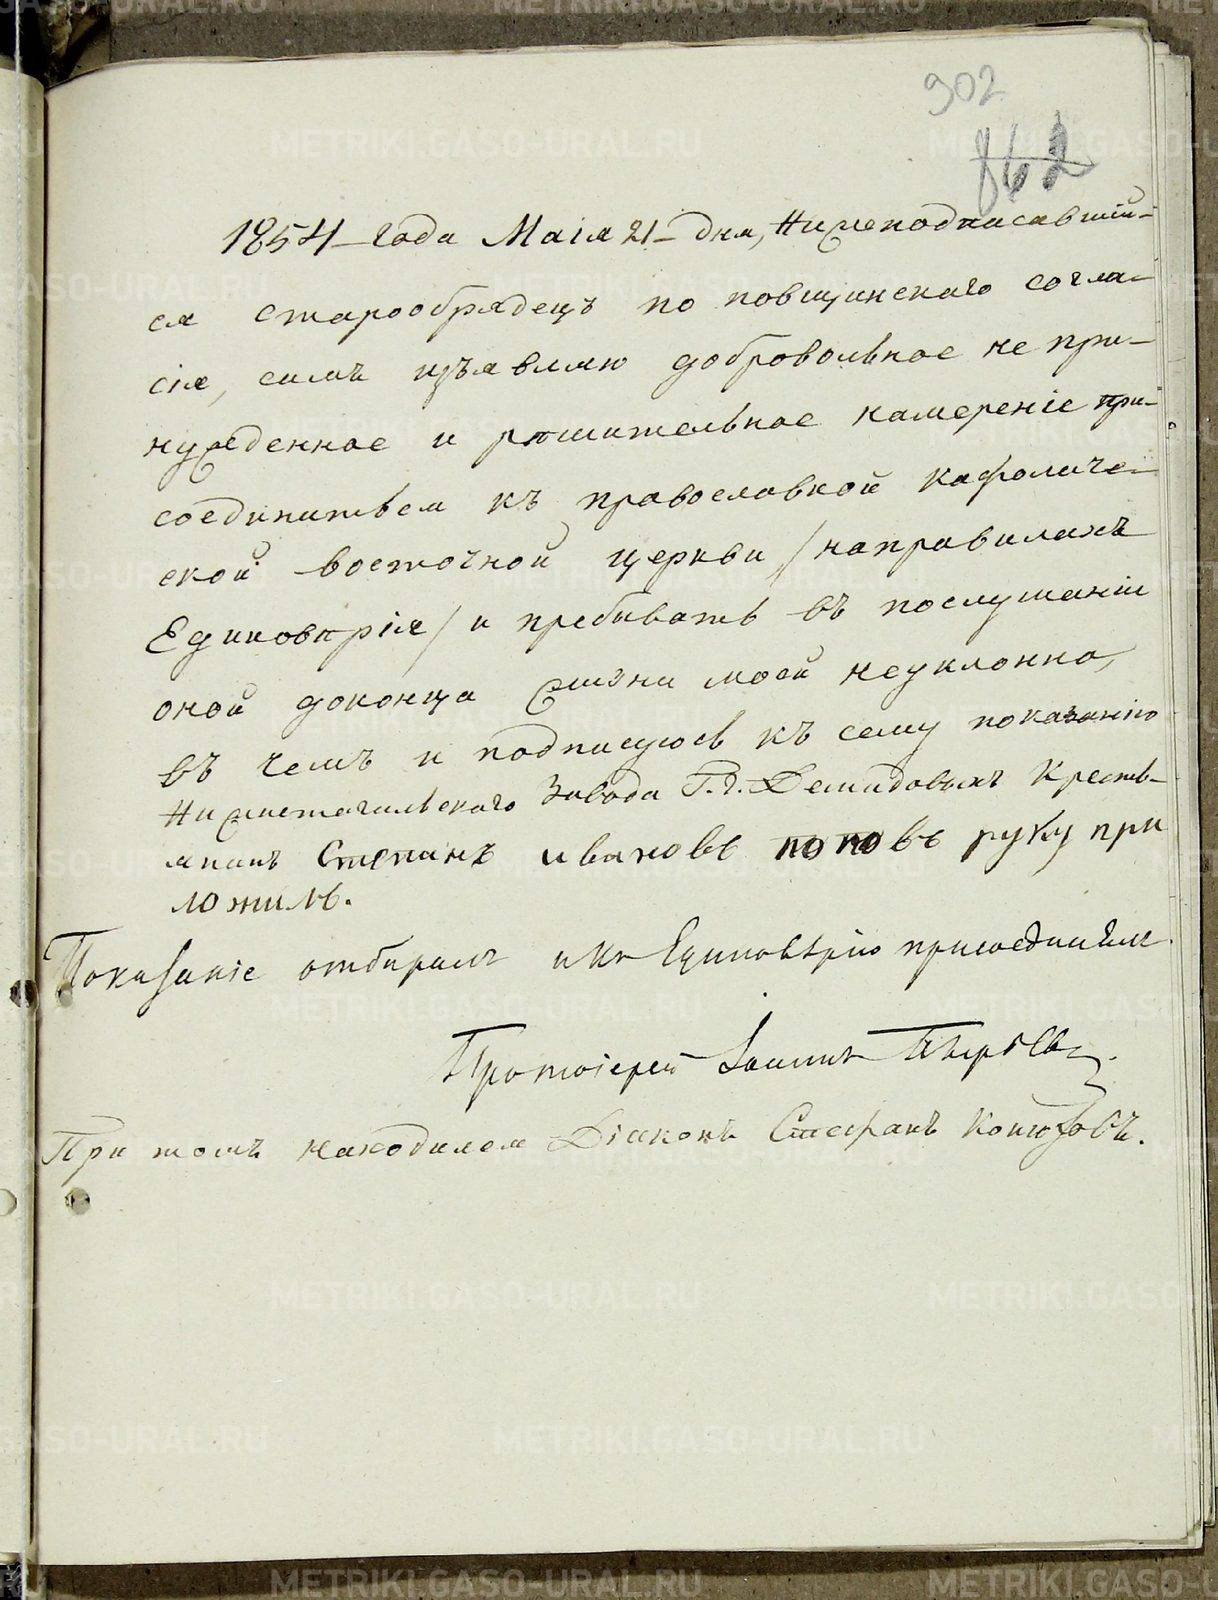 902
862
1854 года Маія 21 дня, Нижеподписавшій-
ся старообрядецъ по повщинскаго согла-
сія, симъ изъявляю добровольное не при-
нужденное и рѣшительное намереніе при-
соединиться къ православной кафоличе-
ской восточной церкви /направилахъ
Единовѣрія/ и пребывать въ послушаніи
оной доконца жизни моей неуклонно,
въ чемъ и подписуюсь къ сему показанію
Нижнетагильскаго завода Г.г. Демидовыхъ Кресть-
янинъ Степанъ ивановъ поповъ руку при
ложилъ.
Показаніе отбиралъ и къ Единовѣрію присоединилъ
Протоіерей Іоаннъ
При томъ находился Діаконъ Стефанъ Конюховъ.
METRIKI.GASO-URAL.RU